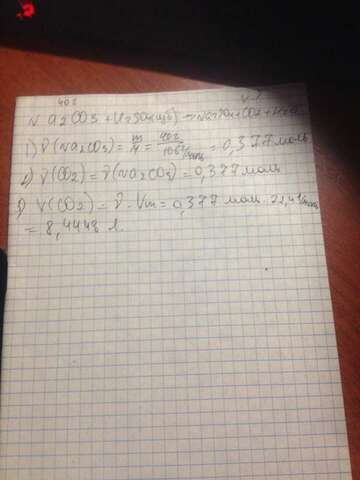 40г V-?
Na2CO3 + H2SO4(изб) → Na2SO4 + CO2 + H2O
1) ν(Na2CO3) = m/M = 40г/106г/моль = 0,377 моль
2) ν(CO2) = ν(Na2CO3) = 0,377 моль
3) V(CO2) = ν · Vm = 0,377 моль · 22,4 л/моль
= 8,4448 л.